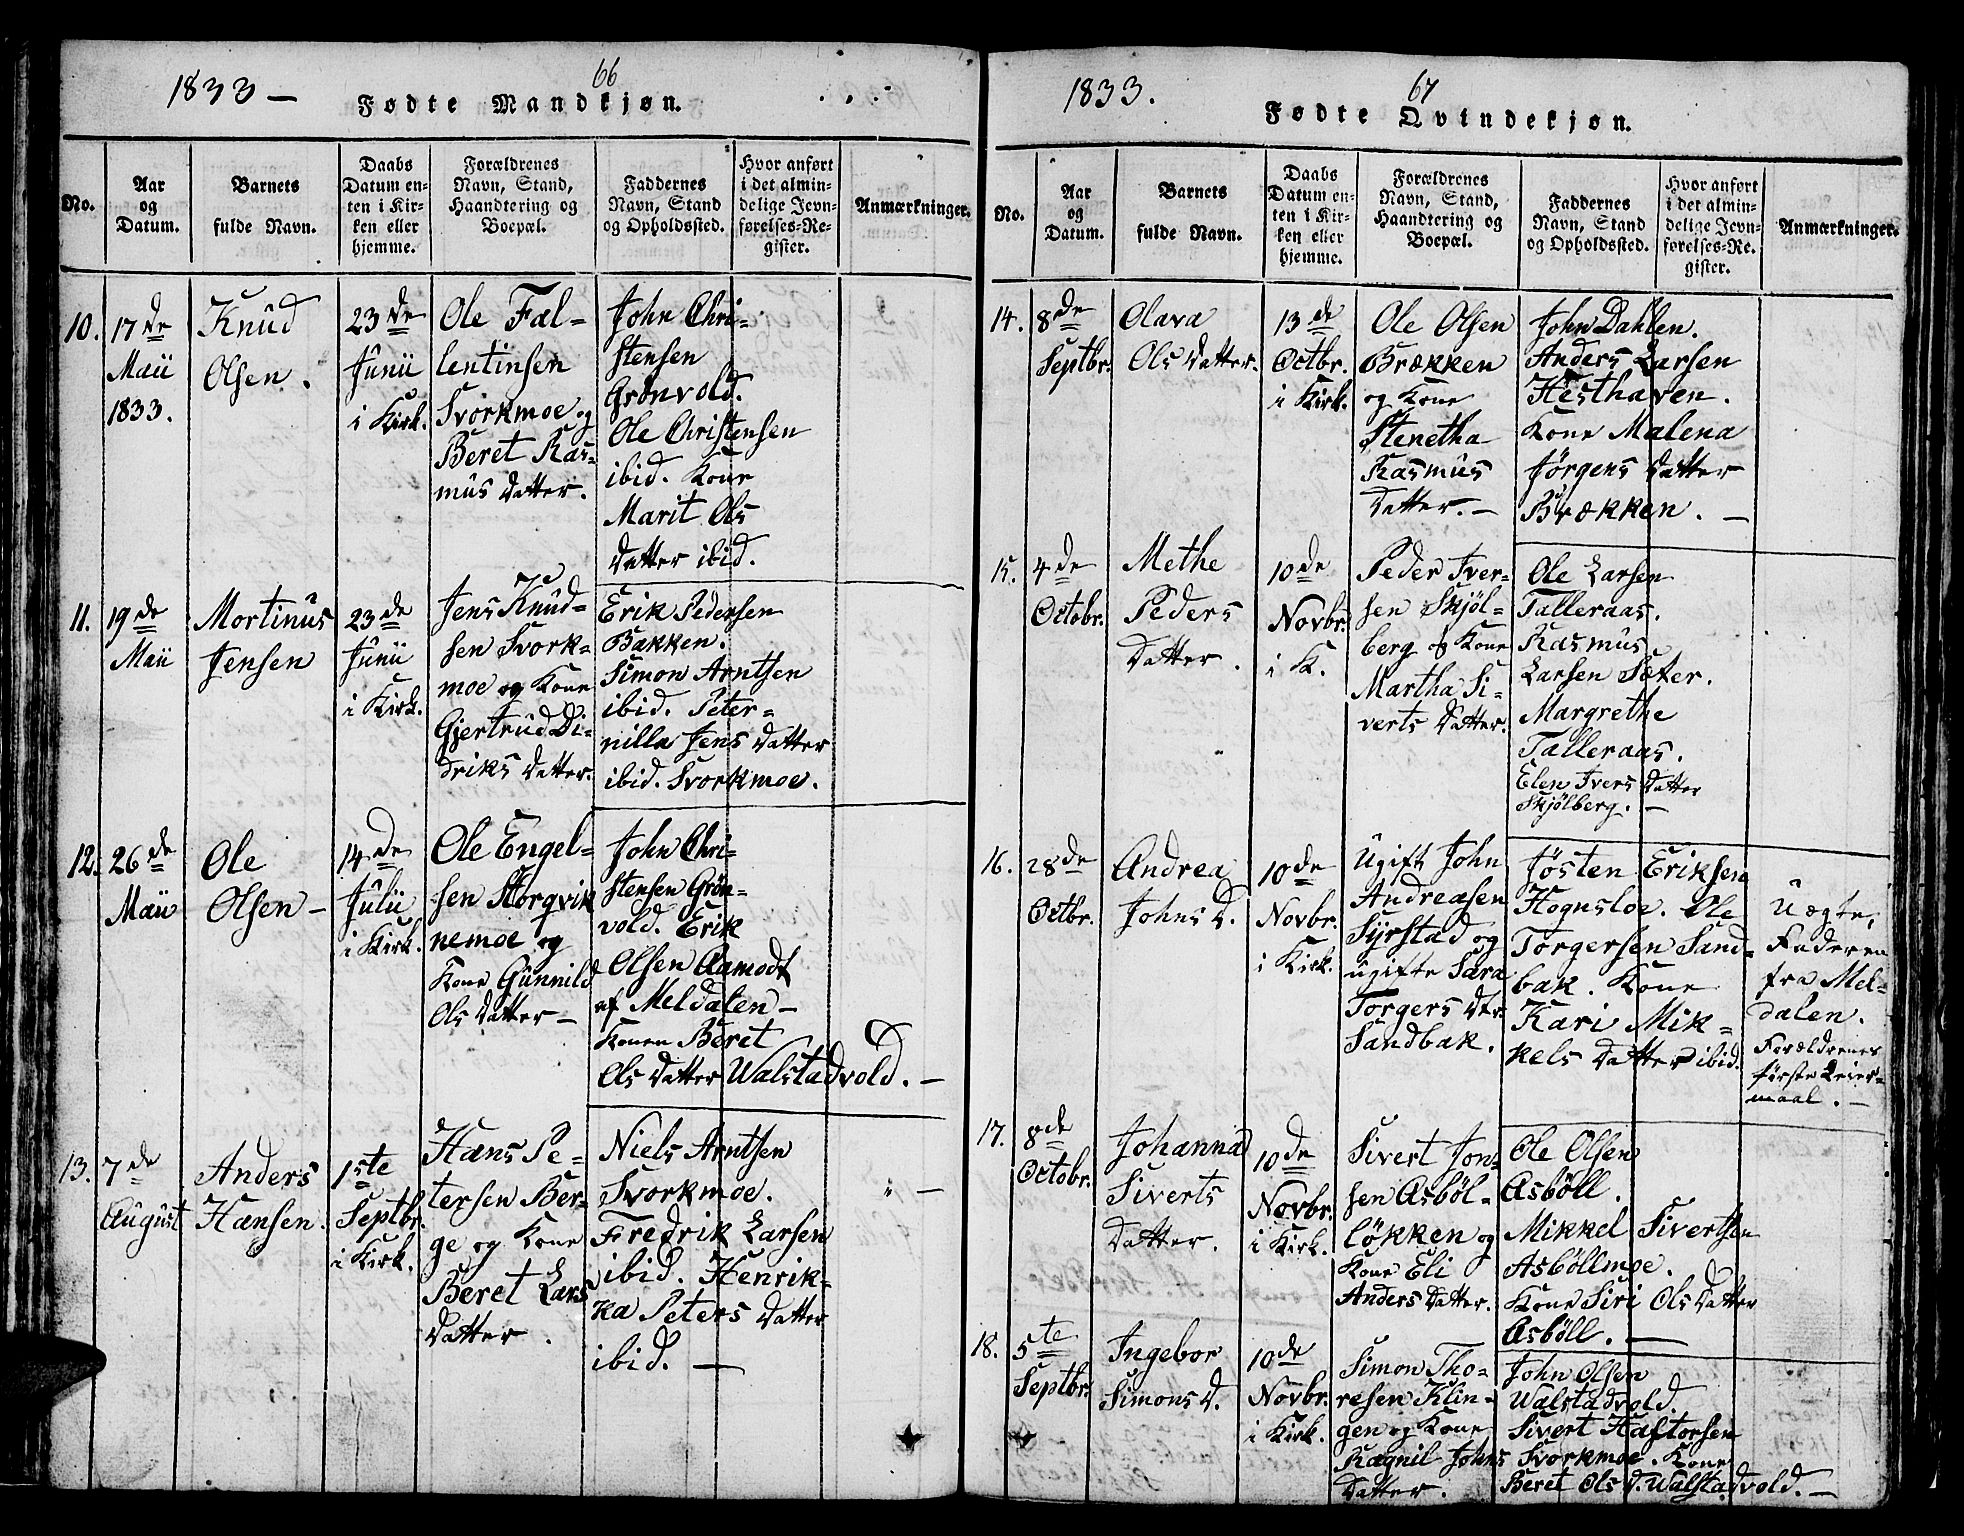 1833 —
66
Fødte Mandkjøn.
No.
Aar
og
Datum.
Barnets
fulde Navn.
Daabs
Datum en-
ten i Kir-
ken eller
hjemme.
Forældrenes
Navn, Stand,
Haandtering og
Boepæl.
Faddernes
Navn, Stand
og Opholdssted.
Hvor anført
i det almin-
delige Jevn-
førelses-Re-
gister.
Anmærkninger.
10.
17de
Maii
1833.
Knud
Olsen.
23de
Junii
i Kirk.
Ole Fal-
lentinsen
Svorkmoe og
Beret Ras-
mus Datter.
John Chri-
stensen
Grønvold.
Ole Christensen
ibid. Kone
Marit Ols
Datter ibid.
11.
19de
Maii
Mortinus
Jensen
23de
Junii
i Kirk.
Jens Knud-
sen Svork-
moe og Kone
Gjertrud Di-
driks Datter.
Erik Pedersen
Bakken.
Simon Arntsen
ibid. Peter-
nilla Jens Datter
ibid. Svorkmoe.
12.
26de
Maii
Ole
Olsen —
14de
Julii
i Kirk.
Ole Engel-
sen Storqvik
nemoe og
Kone Gunnild
Ols Datter —
John Chri-
stensen Grøn-
vold. Erik
Olsen Aamodt
af Meldalen —
Konen Beret
Ols Datter Walstadvold. —
13.
7de
August
Anders
Hansen.
1ste
Septbr.
i Kirk.
Hans Pe-
tersen Ber-
ge og Kone
Beret Lars
Datter.
Niels Arntsen
Svorkmoe.
Fredrik Larsen
ibid. Henrik-
ka Peters Datter
ibid. —
" —
1833.
67
Fødte Qvindekjøn.
No.
Aar
og
Datum.
Barnets
fulde Navn.
Daabs
Datum en-
ten i Kir-
ken eller
hjemme.
Forældrenes
Navn, Stand,
Haandtering og
Boepæl.
Faddernes
Navn, Stand
og Opholdssted.
Hvor anført
i det almin-
delige Jevn-
førelses-Re-
gister.
Anmærkninger.
14.
8de
Septbr.
Olava
Ols Datter.
13de
Octbr.
i Kirk.
Ole Olsen
Brækken
og Kone
Stenetha
Rasmus
Datter. —
John Dahlen.
Anders Larsen
Hesthaven.
Kone Malena
Jørgens Datter
Brækken. —
15.
4de
Octobr.
Methe
Peders
Datter.
10de
Novbr.
i K.
Peder Iver-
sen Skjøl-
berg og Kone
Martha Si-
verts Datter.
Ole Larsen
Talleraas.
Rasmus
Larsen Sæter.
Margrethe
Talleraas.
Elen Ivers Datter
Skjølberg. —
16.
28de
Octbr.
Andrea
Johns D.
10de
Novbr.
i Kirk.
Ugift John
Andreasen
Syrstad og
ugifte Sara
Torgers Dtr.
Sandbak.
Jøsten Eriksen
Hognsloe. Ole
Torgersen Sand-
bak. Kone
Kari Mik-
kels Datter ibid.
Uægte,
Faderen
fra Mel-
dalen.
Forældrenes
første Leier-
maal. —
17.
8de
Octobr.
Johanna
Siverts
Datter.
10de
Novbr.
i Kirk.
Sivert Jon-
sen Asbøl-
løkken og
Kone Eli
Anders Datter.
Ole Olsen
Asbøll.
Mikkel Sivertsen
Asbøllmoe.
Kone Siri Ols Datter
Asbøll. —
18.
5te
Septbr.
Ingebor
Simons D.
10de
Novbr.
i Kirk.
Simon Tho-
resen Klin-
gen og Kone
Ragnil Johns
Datter.
John Olsen
Walstadvold.
Sivert Haftorsen
Svorkmoe. Kone
Beret Ols D. Walstadvold. —